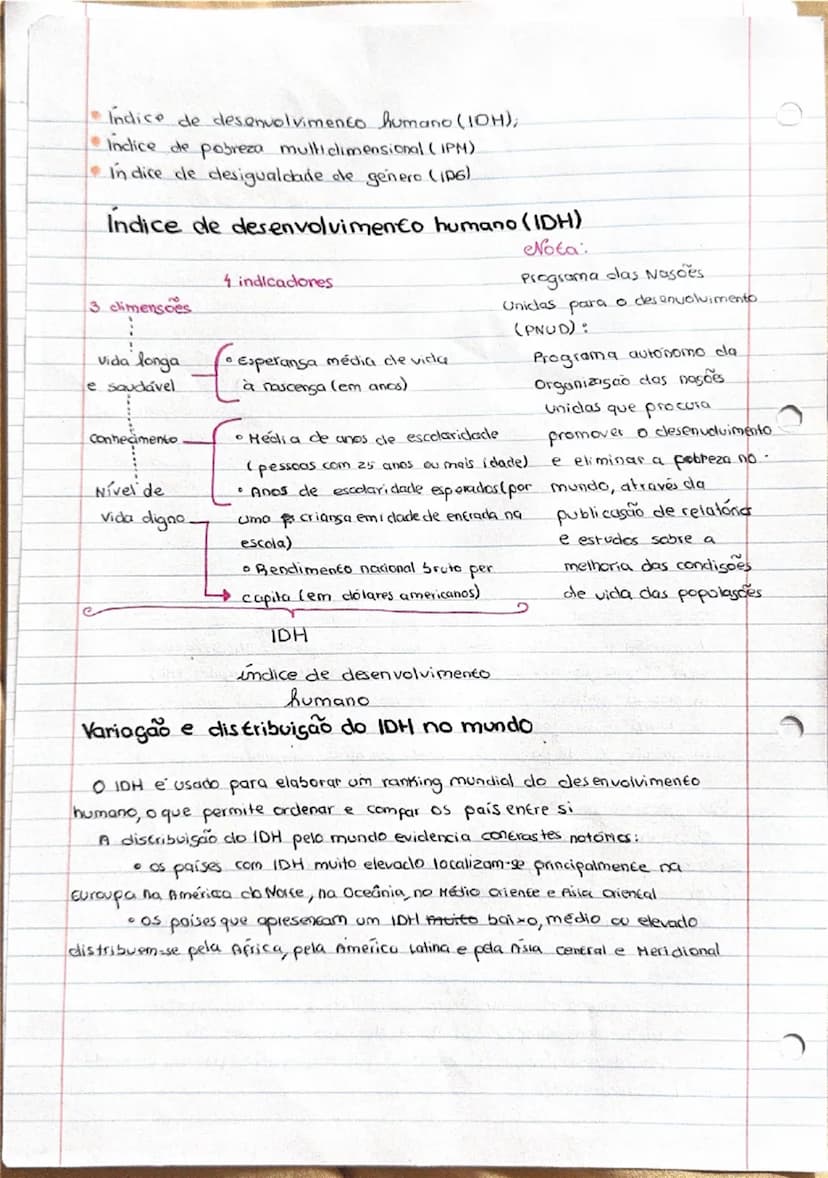 • Índice de desenvolvimento humano (IDH);
• Índice de pobreza multidimensional (IPM)
• Índice de desigualdade de género (IDG)
Índice de desenvolvimento humano (IDH)
4 indicadores
3 dimensões
Vida longa
e saudável
Conhecimento
Nível de
Vida digno
• Esperança média de vida
à nascença (em anos)
• Média de anos de escolaridade
(pessoas com 25 anos ou mais idade)
• Anos de escolaridade esperados (por
uma criança em idade de entrada na
escola)
• Rendimento nacional bruto per
capita (em dólares americanos)
Nota:
Programa das Nações
Unidas para o desenvolvimento
(PNUD):
Programa autónomo da
Organização das nações
unidas que procura
promover o desenvolvimento
e eliminar a pobreza no
mundo, através da
publicação de relatórios
e estudos sobre a
melhoria das condições
de vida das populações
IDH
índice de desenvolvimento
humano
Variação e distribuição do IDH no mundo
O IDH é usado para elaborar um ranking mundial do desenvolvimento
humano, o que permite ordenar e compar os país entre si
A distribuição do IDH pelo mundo evidencia contrastes notórios:
• os países com IDH muito elevado localizam-se principalmente na
Euroupa na América do Norte, na Oceânia, no Médio Oriente e Ásia Oriental
• os países que apresentam um IDH muito baixo, médio ou elevado
distribuem-se pela África, pela América Latina e pela Ásia Central e Meridional